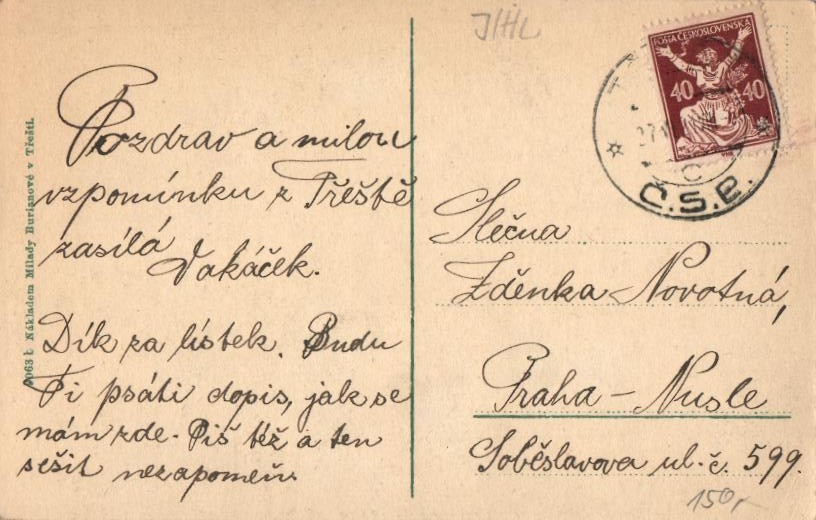 Pozdrav a milou
vzpomínku z Třeště
zasílá
Vakáček.
Dík za lístek. Budu
Ti psáti dopis, jak se
mám zde. Piš též a ten
sešit nezapomeň.
Nákladem Milady Burianové v Třešti.
J/HL
POŠTA ČESKOSLOVENSKÁ
40 40
Č.S.P.
Slečna
Zděnka Novotná,
Praha – Nusle
Soběslavova ul. č. 599.
150,-